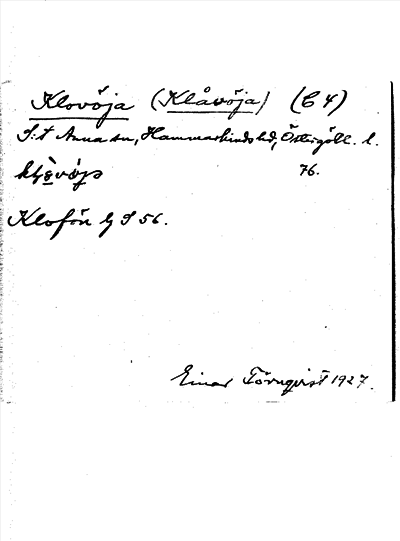 Klovöja (Klåvöja) (C 4)
S:t Anna sn, Hammarkinds hd, Östergötl. l.
76.
Klofön
S 56.
Einar Törnqvist 1927.